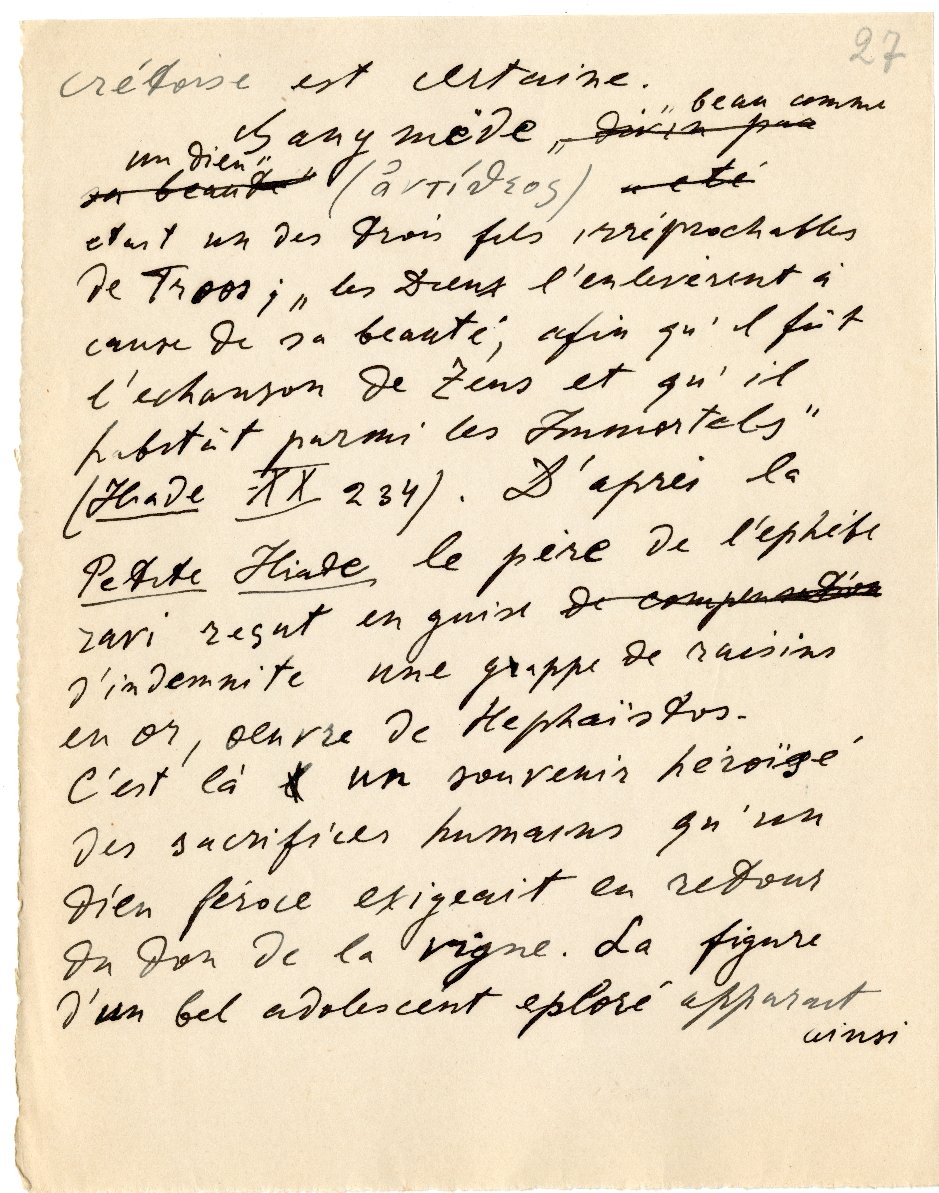 27
crétoise est certaine.
Ganymède „divin par „beau comme
un dieu"
sa beauté" (ἀντίθεος) a été
etait un des trois fils irréprochables
de Troos ; „les Dieux l'enlevèrent à
cause de sa beauté, afin qu'il fût
l'echanson de Zeus et qu'il
habitât parmi les Immortels"
(Iliade XX 234). D'après la
Petite Iliade le père de l'ephèbe
ravi reçut en guise de compensation
d'indemnite une grappe de raisins
en or, œuvre de Hephaïstos.
C'est là un souvenir heroïsé
des sacrifices humains qu'un
dieu féroce exigeait en retour
du don de la vigne. La figure
d'un bel adolescent eploré apparait
ainsi